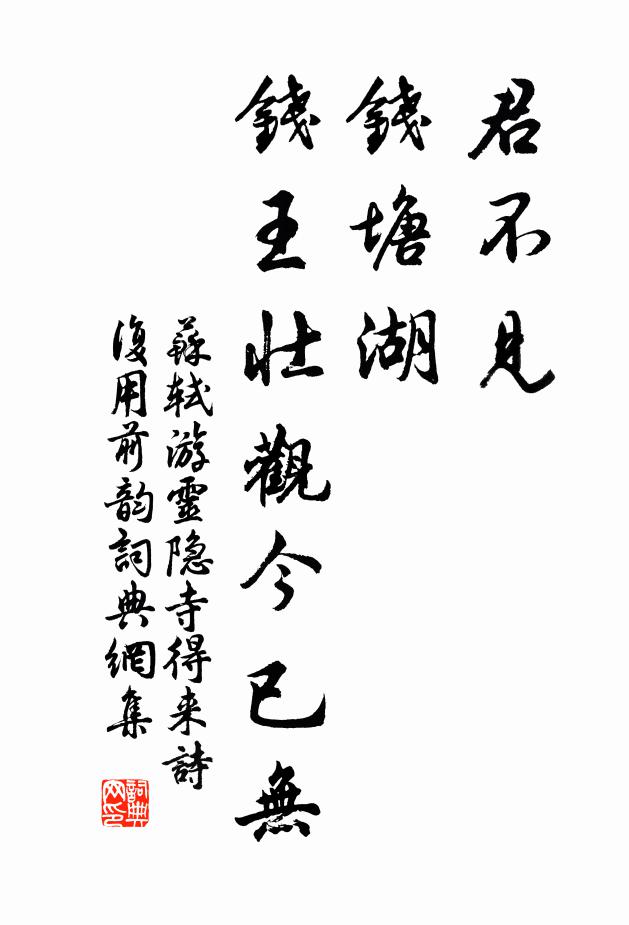 君不見
錢塘湖
錢王壯觀今已無
蘇軾游靈隐寺得来詩
復用前韵詞典網集
詞典網印